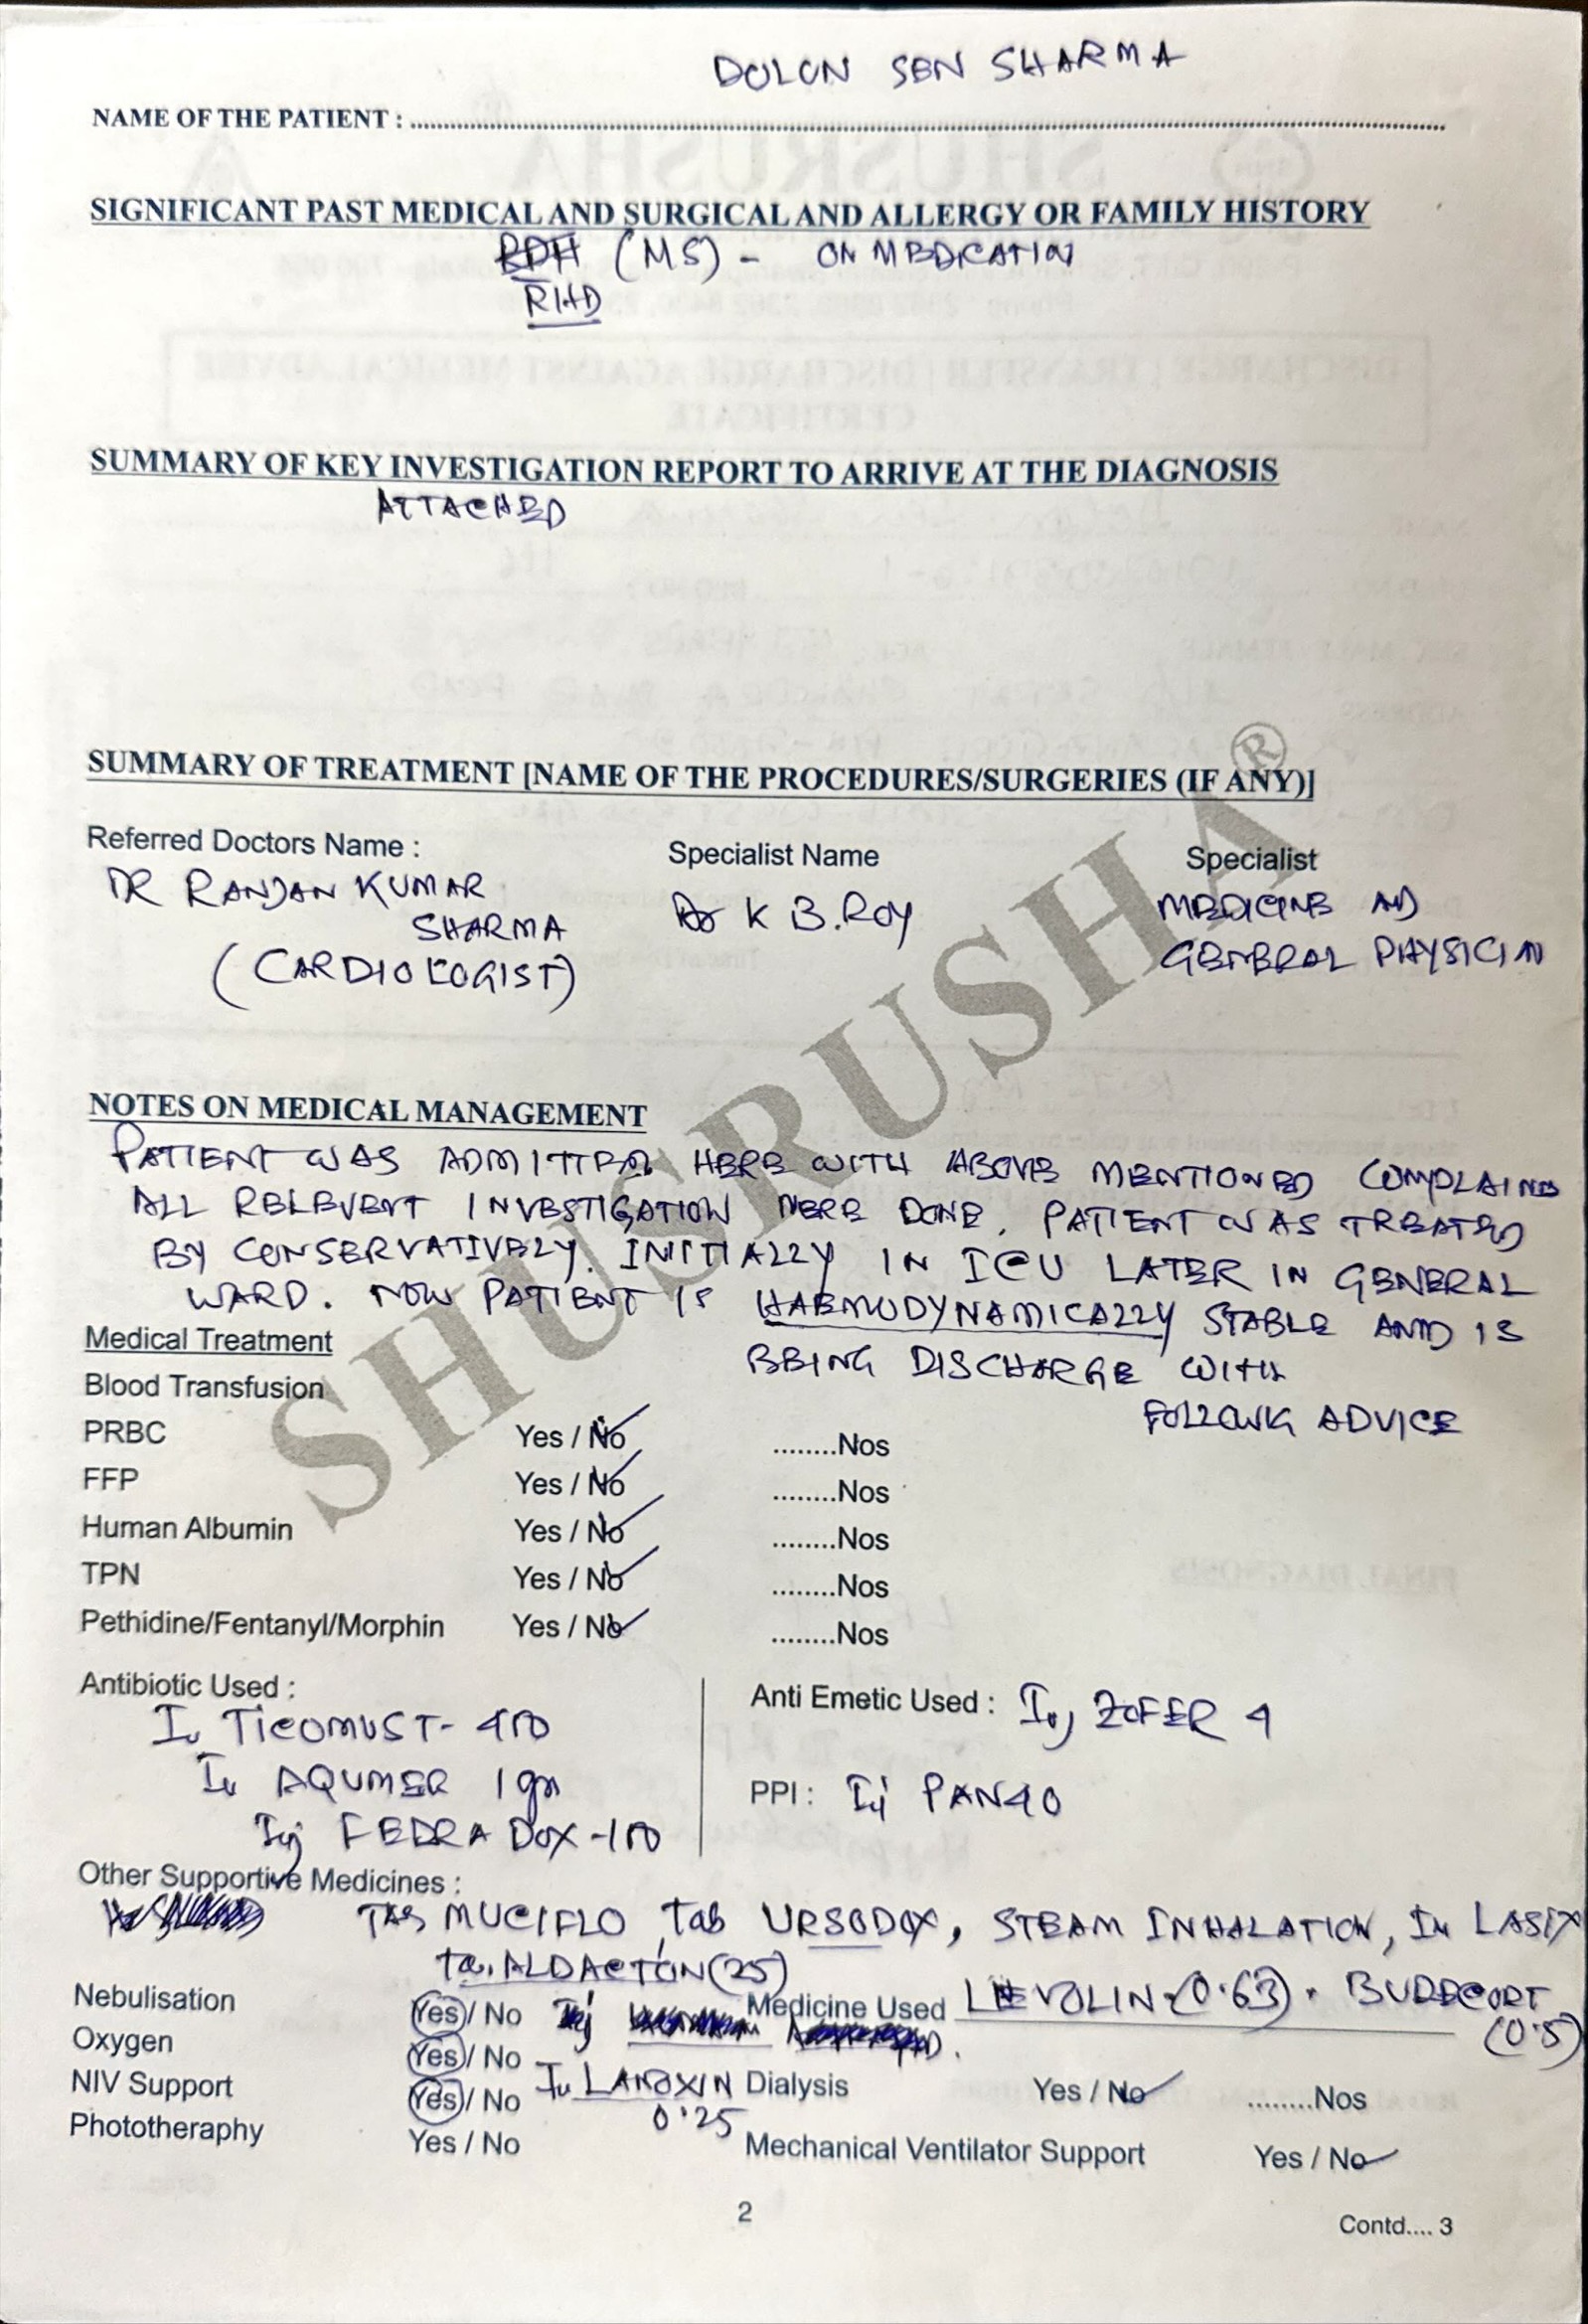 DOLON SEN SHARMA
NAME OF THE PATIENT :
SIGNIFICANT PAST MEDICAL AND SURGICAL AND ALLERGY OR FAMILY HISTORY
(MS) - ON MEDICATION
RHD
SUMMARY OF KEY INVESTIGATION REPORT TO ARRIVE AT THE DIAGNOSIS
ATTACHED
SUMMARY OF TREATMENT [NAME OF THE PROCEDURES/SURGERIES (IF ANY)]
Referred Doctors Name : Specialist Name Specialist
DR RANJAN KUMAR Dr K B. ROY MEDICINE AND
SHARMA GENERAL PHYSICIN
(CARDIOLOGIST)
SHUSRUSHA®
NOTES ON MEDICAL MANAGEMENT
PATIENT WAS ADMITTED HERE WITH ABOVE MENTIONED COMPLAINS
ALL RELEVENT INVESTIGATION WERE DONE. PATIENT WAS TREATED
BY CONSERVATIVELY. INITIALLY IN ICU LATER IN GENERAL
WARD. NOW PATIENT IS HAEMODYNAMICALLY STABLE AND IS
Medical Treatment BEING DISCHARGE WITH
Blood Transfusion FOLLOWING ADVICE
PRBC Yes / No ........Nos
FFP Yes / No ........Nos
Human Albumin Yes / No ........Nos
TPN Yes / No ........Nos
Pethidine/Fentanyl/Morphin Yes / No ........Nos
Antibiotic Used : Anti Emetic Used : Inj ZOFER 4
TICOMUST- 400
AQUMER 1 gm PPI : Inj PAN 40
Inj FEDRA DOX -100
Other Supportive Medicines :
TAB MUCIFLO, Tab URSODOX, STEAM INHALATION, Inj LASIX
Tab. ALDACTON (25)
Nebulisation Yes / No Inj Medicine Used LEVOLIN (0.63). BUDECORT
(0.5)
Oxygen Yes / No
NIV Support Yes / No Inj LANOXIN Dialysis Yes / No ........Nos
0.25
Phototheraphy Yes / No Mechanical Ventilator Support Yes / No
2
Contd.... 3